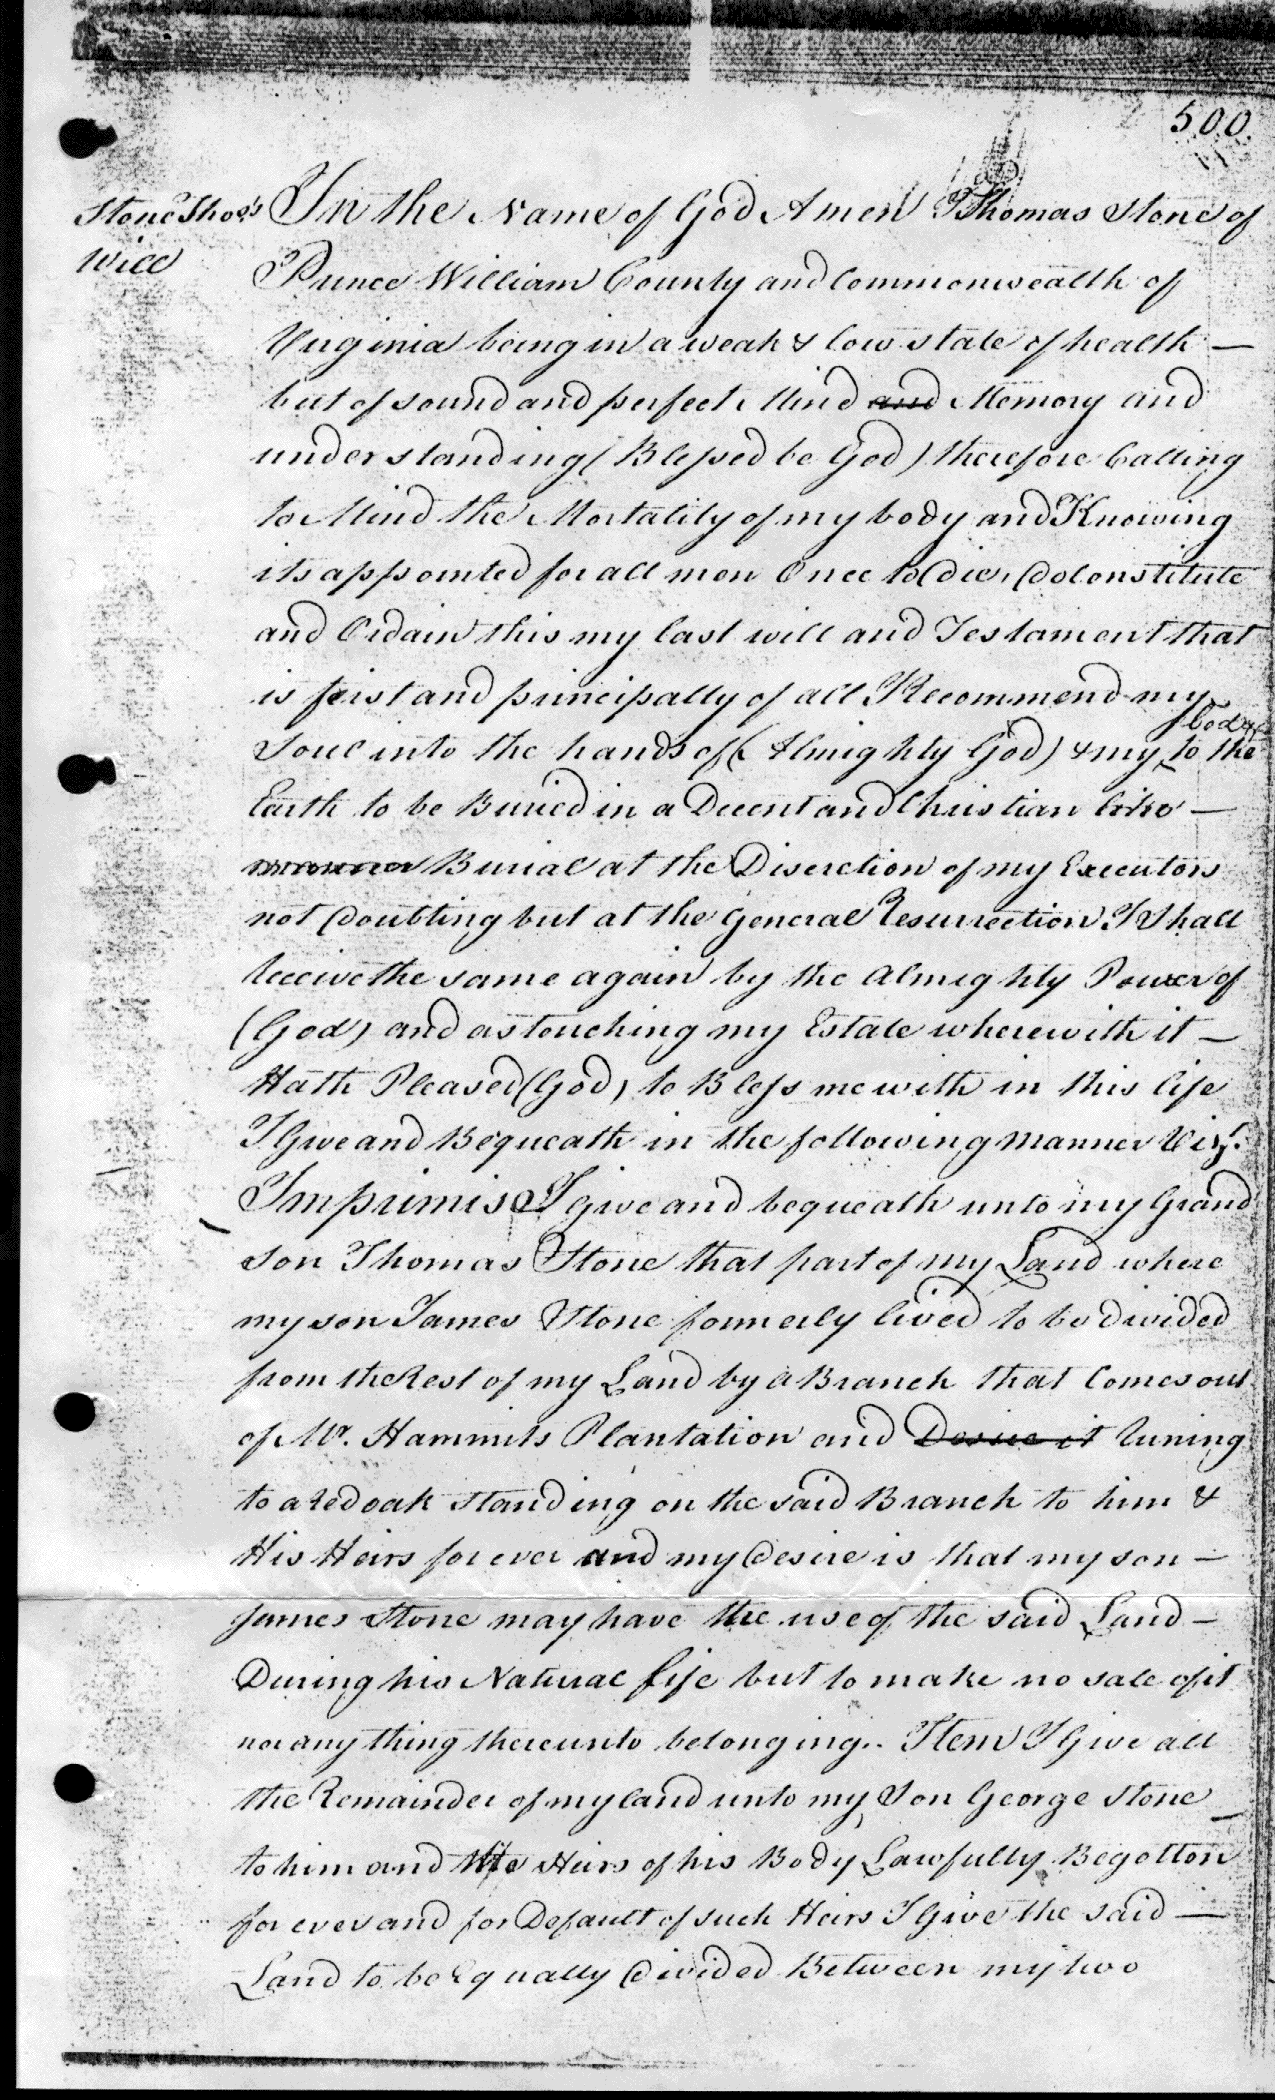 500.
Stone Thos's
Will
In the Name of God Amen I Thomas Stone of
Prince William County and Commonwealth of
Virginia being in a weak & low state of health —
but of sound and perfect Mind and Memory and
understanding (Blessed be God) therefore Calling
to Mind the Mortality of my body and Knowing
its appointed for all men Once to Die, Do Constitute
and Ordain this my last will and Testament that
is first and principally of all I Recommend my
Soul into the hands of (Almighty God) & my body to the
Earth to be Buried in a Decent and Christian like —
manner Burial at the Discretion of my Executors
not Doubting but at the General Resurrection I Shall
Receive the same again by the Almighty Power of
(God) and as touching my Estate wherewith it —
Hath Pleased (God) to Bless me with in this life
I Give and Bequeath in the following manner Viz.
Imprimis I give and bequeath unto my Grand
Son Thomas Stone that part of my Land where
my son James Stone formerly lived to be Divided
from the Rest of my Land by a Branch that Comes out
of Mr. Hammits Plantation and Desire it Runing
to a Red oak standing on the said Branch to him &
His Heirs for ever and my Desire is that my son —
James Stone may have the use of the said Land —
During his Natural life but to make no sale of it
nor any thing thereunto belonging.. Item I Give all
the Remainder of my land unto my Son George Stone —
to him and the Heirs of his Body Lawfully Begotton
for ever and for Default of such Heirs I Give the said —
Land to be Equally Divided Between my two